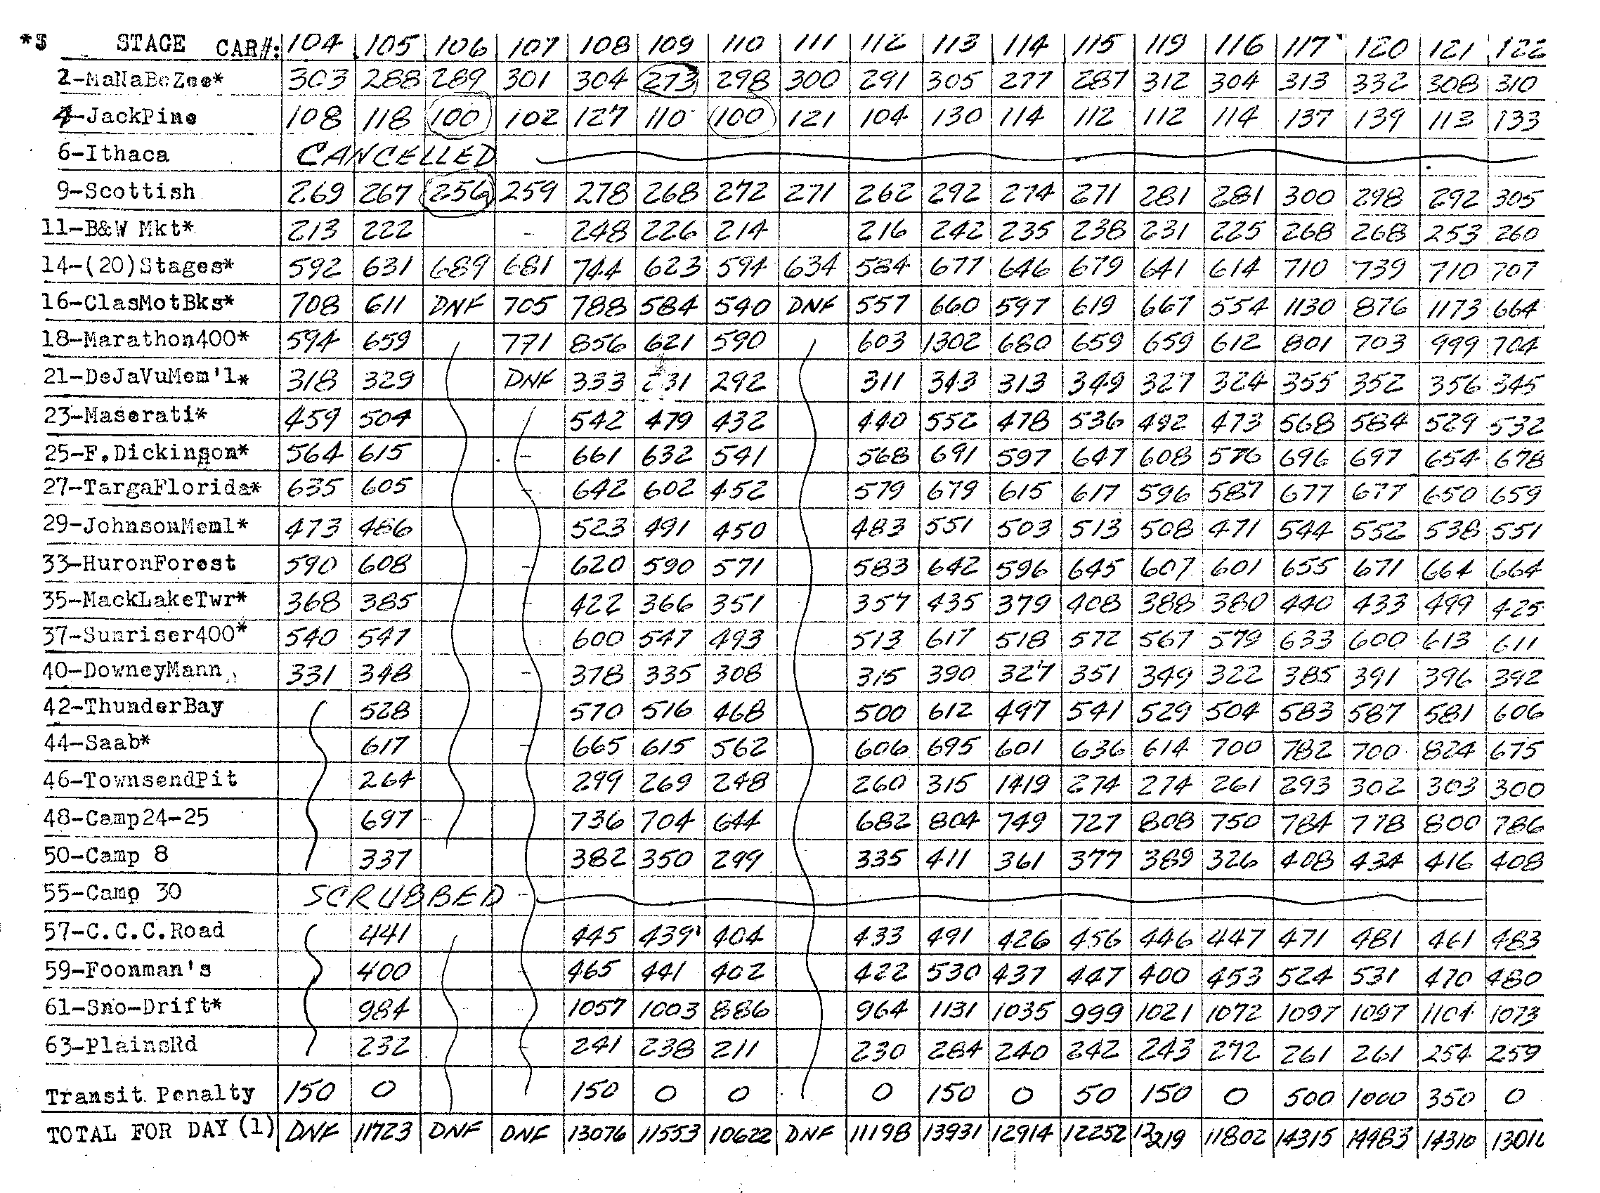 *3 STAGE CAR#: 104 105 106 107 108 109 110 111 112 113 114 115 119 116 117 120 121 122
2-MaNaBoZee* 303 288 289 301 304 273 298 300 291 305 277 287 312 304 313 332 308 310
4-JackPine 108 118 100 102 127 110 100 121 104 130 114 112 112 114 137 139 113 133
6-Ithaca CANCELLED
9-Scottish 269 267 256 259 278 268 272 271 262 292 274 271 281 281 300 298 292 305
11-B&W Mkt* 213 222 - 248 226 214 216 242 235 238 231 225 268 268 253 260
14-(20)Stages* 592 631 689 681 744 623 594 634 584 677 646 679 641 614 710 739 710 707
16-ClasMotBks* 708 611 DNF 705 788 584 540 DNF 557 660 597 619 667 554 1130 876 1173 664
18-Marathon400* 594 659 771 856 621 590 603 1302 680 659 659 612 801 703 999 704
21-DeJaVuMem'l* 318 329 DNF 333 231 292 311 343 313 349 327 324 355 352 356 345
23-Maserati* 459 504 542 479 432 440 552 478 536 492 473 568 584 529 532
25-F.Dickinson* 564 615 - 661 632 541 568 691 597 647 608 576 696 697 654 678
27-TargaFlorida* 635 605 - 642 602 452 579 679 615 617 596 587 677 677 650 659
29-JohnsonMeml* 473 486 523 491 450 483 551 503 513 508 471 544 552 538 551
33-HuronForest 590 608 - 620 590 571 583 642 596 645 607 601 655 671 664 664
35-MackLakeTwr* 368 385 - 422 366 351 357 435 379 408 388 380 440 433 499 425
37-Sunriser400* 540 547 600 547 493 513 617 518 572 567 579 633 600 613 611
40-DowneyMann 331 348 - 378 335 308 315 390 327 351 349 322 385 391 396 392
42-ThunderBay 528 - 570 516 468 500 612 497 541 529 504 583 587 581 606
44-Saab* 617 - 665 615 562 606 695 601 636 614 700 782 700 824 675
46-TownsendPit 264 299 269 248 260 315 1419 274 274 261 293 302 303 300
48-Camp24-25 697 736 704 644 682 804 749 727 808 750 784 778 800 786
50-Camp 8 337 382 350 299 335 411 361 377 389 326 408 434 416 408
55-Camp 30 SCRUBBED
57-C.C.C.Road 441 445 439 404 433 491 426 456 446 447 471 481 461 483
59-Foonman's 400 465 441 402 422 530 437 447 400 453 524 531 470 480
61-Sno-Drift* 984 1057 1003 886 964 1131 1035 999 1021 1072 1097 1097 1101 1073
63-PlainsRd 232 241 238 211 230 284 240 242 243 292 261 261 254 259
Transit Penalty 150 0 150 0 0 0 150 0 50 150 0 500 1000 350 0
TOTAL FOR DAY (1) DNF 11723 DNF DNF 13076 11553 10622 DNF 11198 13931 12914 12252 12219 11802 14315 14983 14310